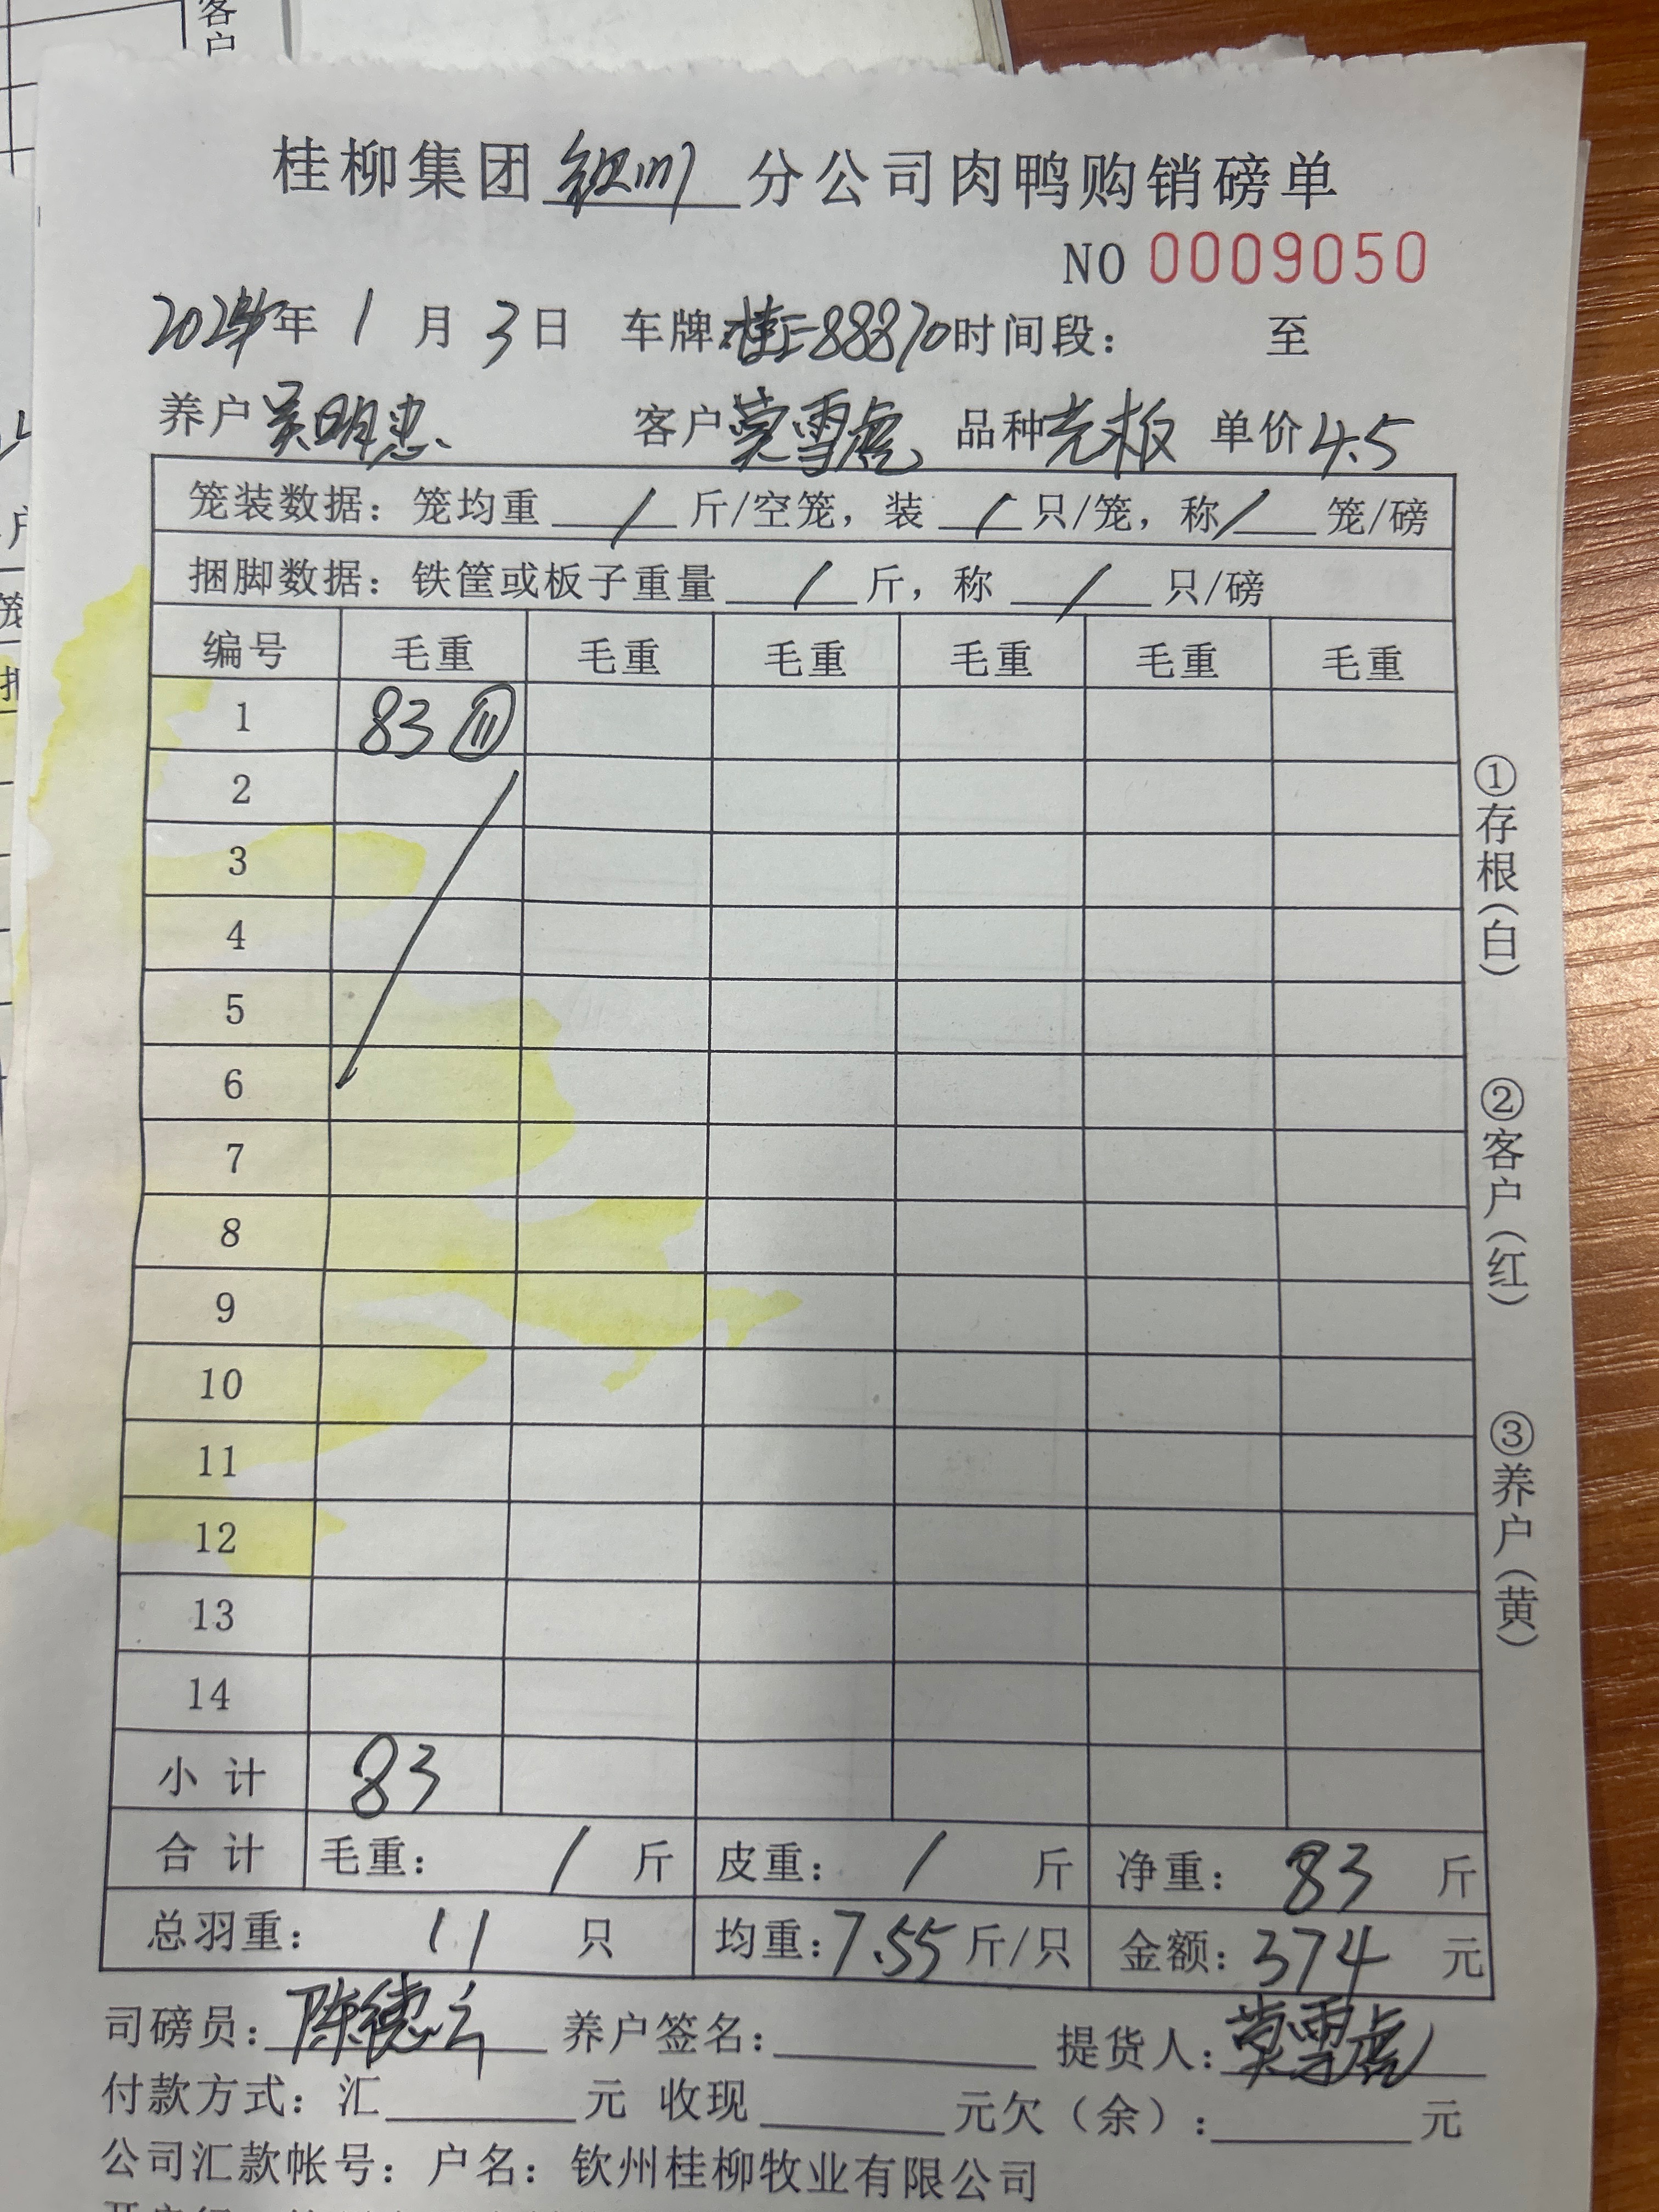 客户
桂柳集团 分公司肉鸭购销磅单
NO 0009050
年 1 月 3 日 车牌: 88870 时间段: 至
养户 吴明忠 客户 莞雪虎 品种 光板 单价 4.5
笼装数据: 笼均重 / 斤/空笼, 装 / 只/笼, 称 / 笼/磅
捆脚数据: 铁筐或板子重量 / 斤, 称 / 只/磅
编号 毛重 毛重 毛重 毛重 毛重 毛重
1 83 ⑪
2
3
4
5
6
7
8
9
10
11
12
13
14
小计 83
合计 毛重: / 斤 皮重: / 斤 净重: 83 斤
总羽重: 11 只 均重: 7.55 斤/只 金额: 374 元
司磅员: 陈德云 养户签名: 提货人: 莞雪虎
付款方式: 汇 元 收现 元欠(余): 元
公司汇款帐号: 户名: 钦州桂柳牧业有限公司
①存根(白)
②客户(红)
③养户(黄)